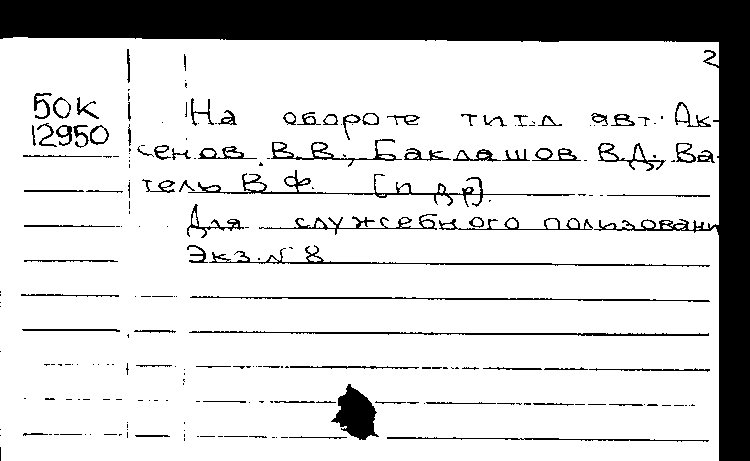 2
50К
12950
На обороте тит.л авт. Ак-
сенов В.В., Баклашов В.Д., Ва-
тель В.Ф. [и др].
Для служебного пользовани
Экз. № 8